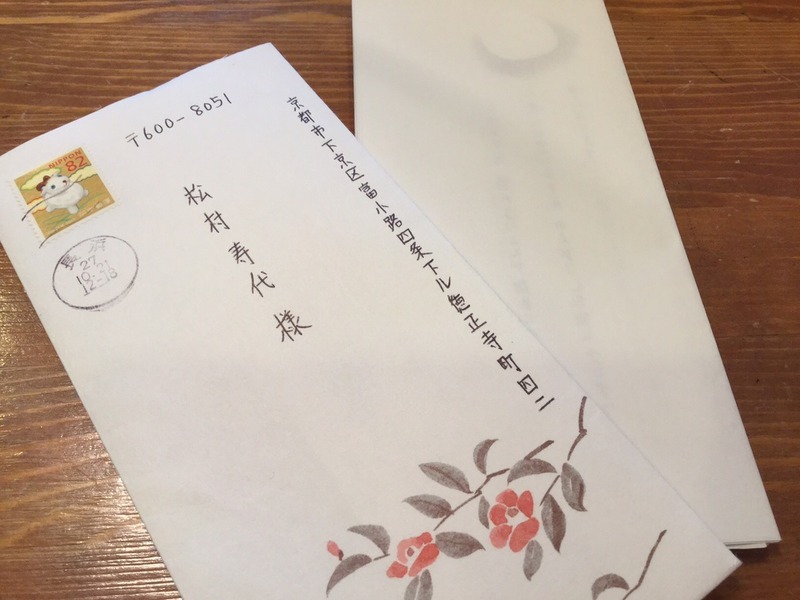 〒600-8051
京都市下京区富小路四条下ル徳正寺町四二
松村寿代様
NIPPON
82
長浜
27
10.21
12-18